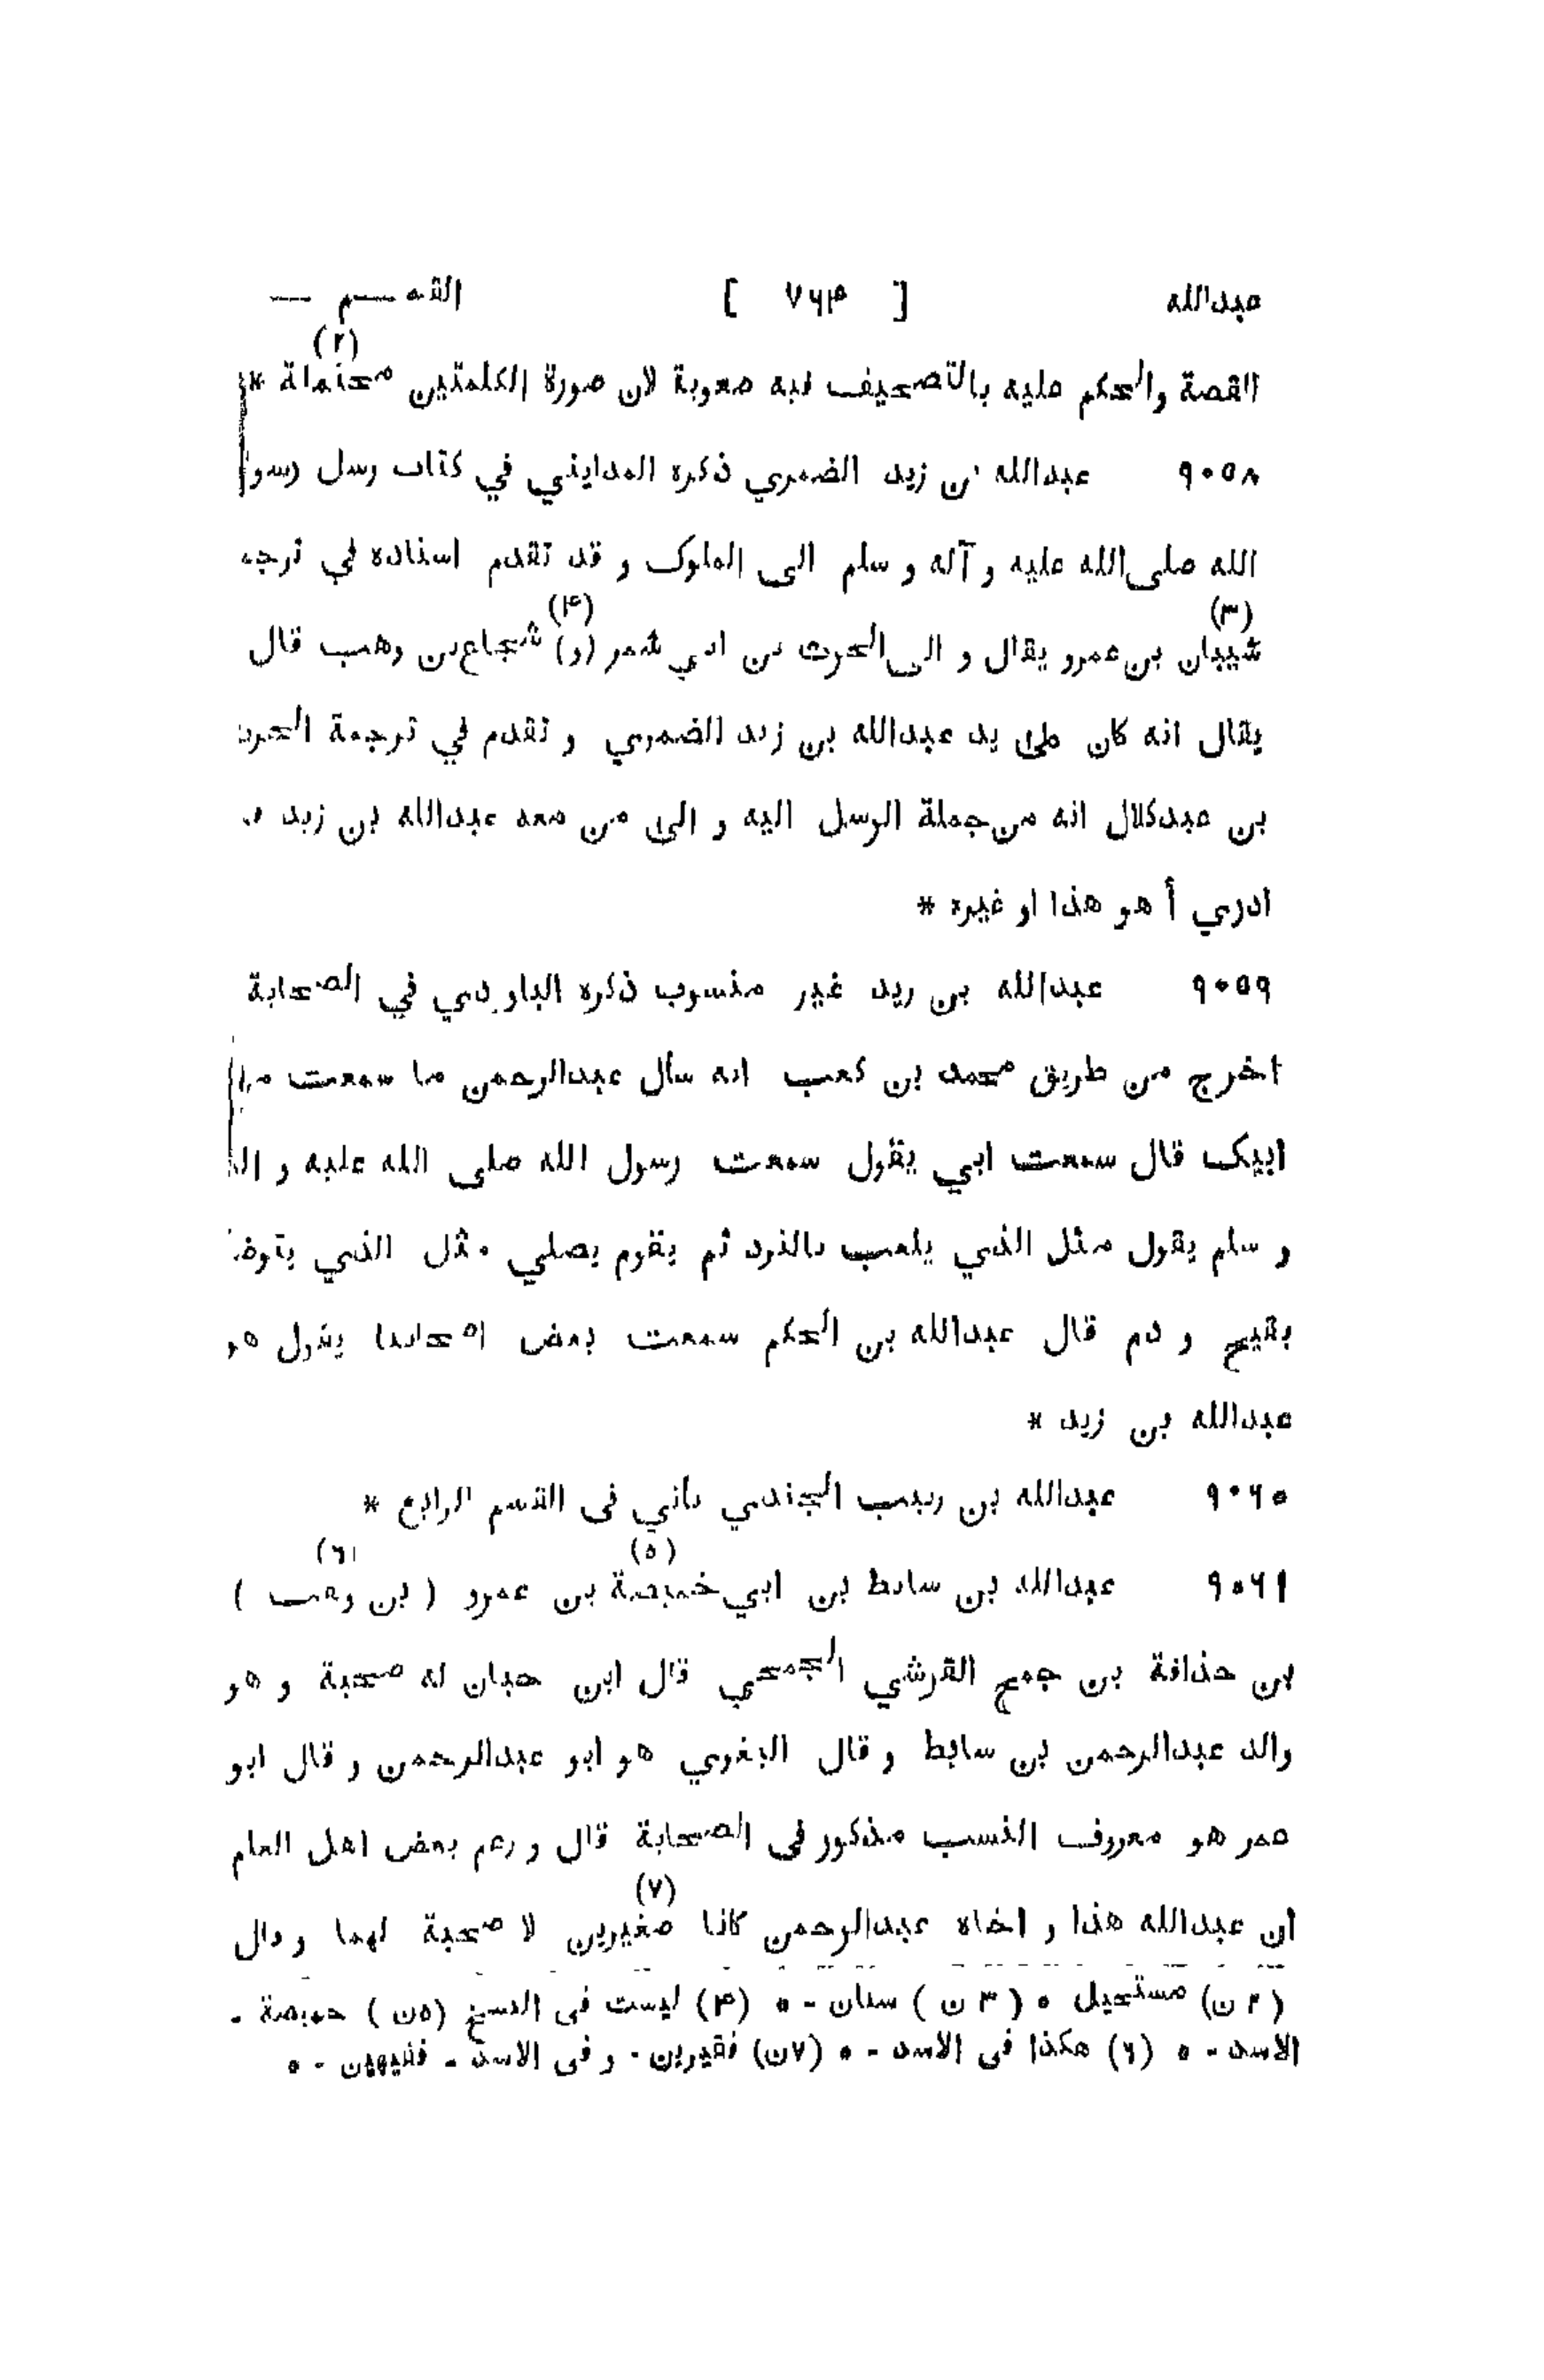 عبدالله [ ٧٦٤ ] القسم —
(٢)
القصة والحكم عليه بالتصحيف فيه صعوبة لان صورة الكلمتين محتملة *
٩٠٥٨ عبدالله بن زيد الضمري ذكره المدايني في كتاب رسل رسول
الله صلى الله عليه و آله و سلم الى الملوك و قد تقدم اسناده في ترجمة
(٣) (٤)
شيبان بن عمرو يقال و الى الحرث بن ابي شمر (و) شجاع بن وهب قال
يقال انه كان على يد عبدالله بن زيد الضمري و تقدم في ترجمة الحرث
بن عبدكلال انه من جملة الرسل اليه و الى من معه عبدالله بن زيد
ادري أ هو هذا او غيره *
٩٠٥٩ عبدالله بن زيد غير منسوب ذكره الباوردي في الصحابة
اخرج من طريق محمد بن كعب انه سأل عبدالرحمن ما سمعت من
ابيك قال سمعت ابي يقول سمعت رسول الله صلى الله عليه و آله
و سلم يقول مثل الذي يلعب بالنرد ثم يقوم يصلي مثل الذي يتوضأ
بقيح و دم قال عبدالله بن الحكم سمعت بعض اصحابنا يقول هو
عبدالله بن زيد *
٩٠٦٥ عبدالله بن زبيب الجندي ياتي فى القسم الرابع *
(٥) (٦)
٩٠٦١ عبدالله بن سابط بن ابي خميصة بن عمرو ( بن وهب )
بن حذافة بن جمح القرشي الجمحي قال ابن حبان له صحبة و هو
والد عبدالرحمن بن سابط و قال البغوي هو ابو عبدالرحمن و قال ابو
عمر هو معروف النسب مذكور فى الصحابة قال و زعم بعض اهل العلم
(٧)
ان عبدالله هذا و اخاه عبدالرحمن كانا صغيرين لا صحبة لهما و قال
(٢ ن) مستحيل ٥ (٣ ن) سنان - ٥ (٤) ليست فى النسخ (٥ن) حميصة -
الاسد - ٥ (٦) هكذا فى الاسد - ٥ (٧ن) فقيرين - و فى الاسد - فقيهين - ٥